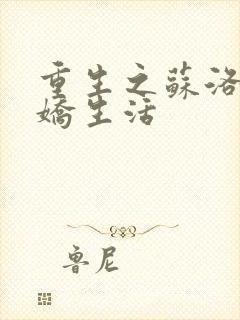 重生之蘇洛
嬌生活
魯尼